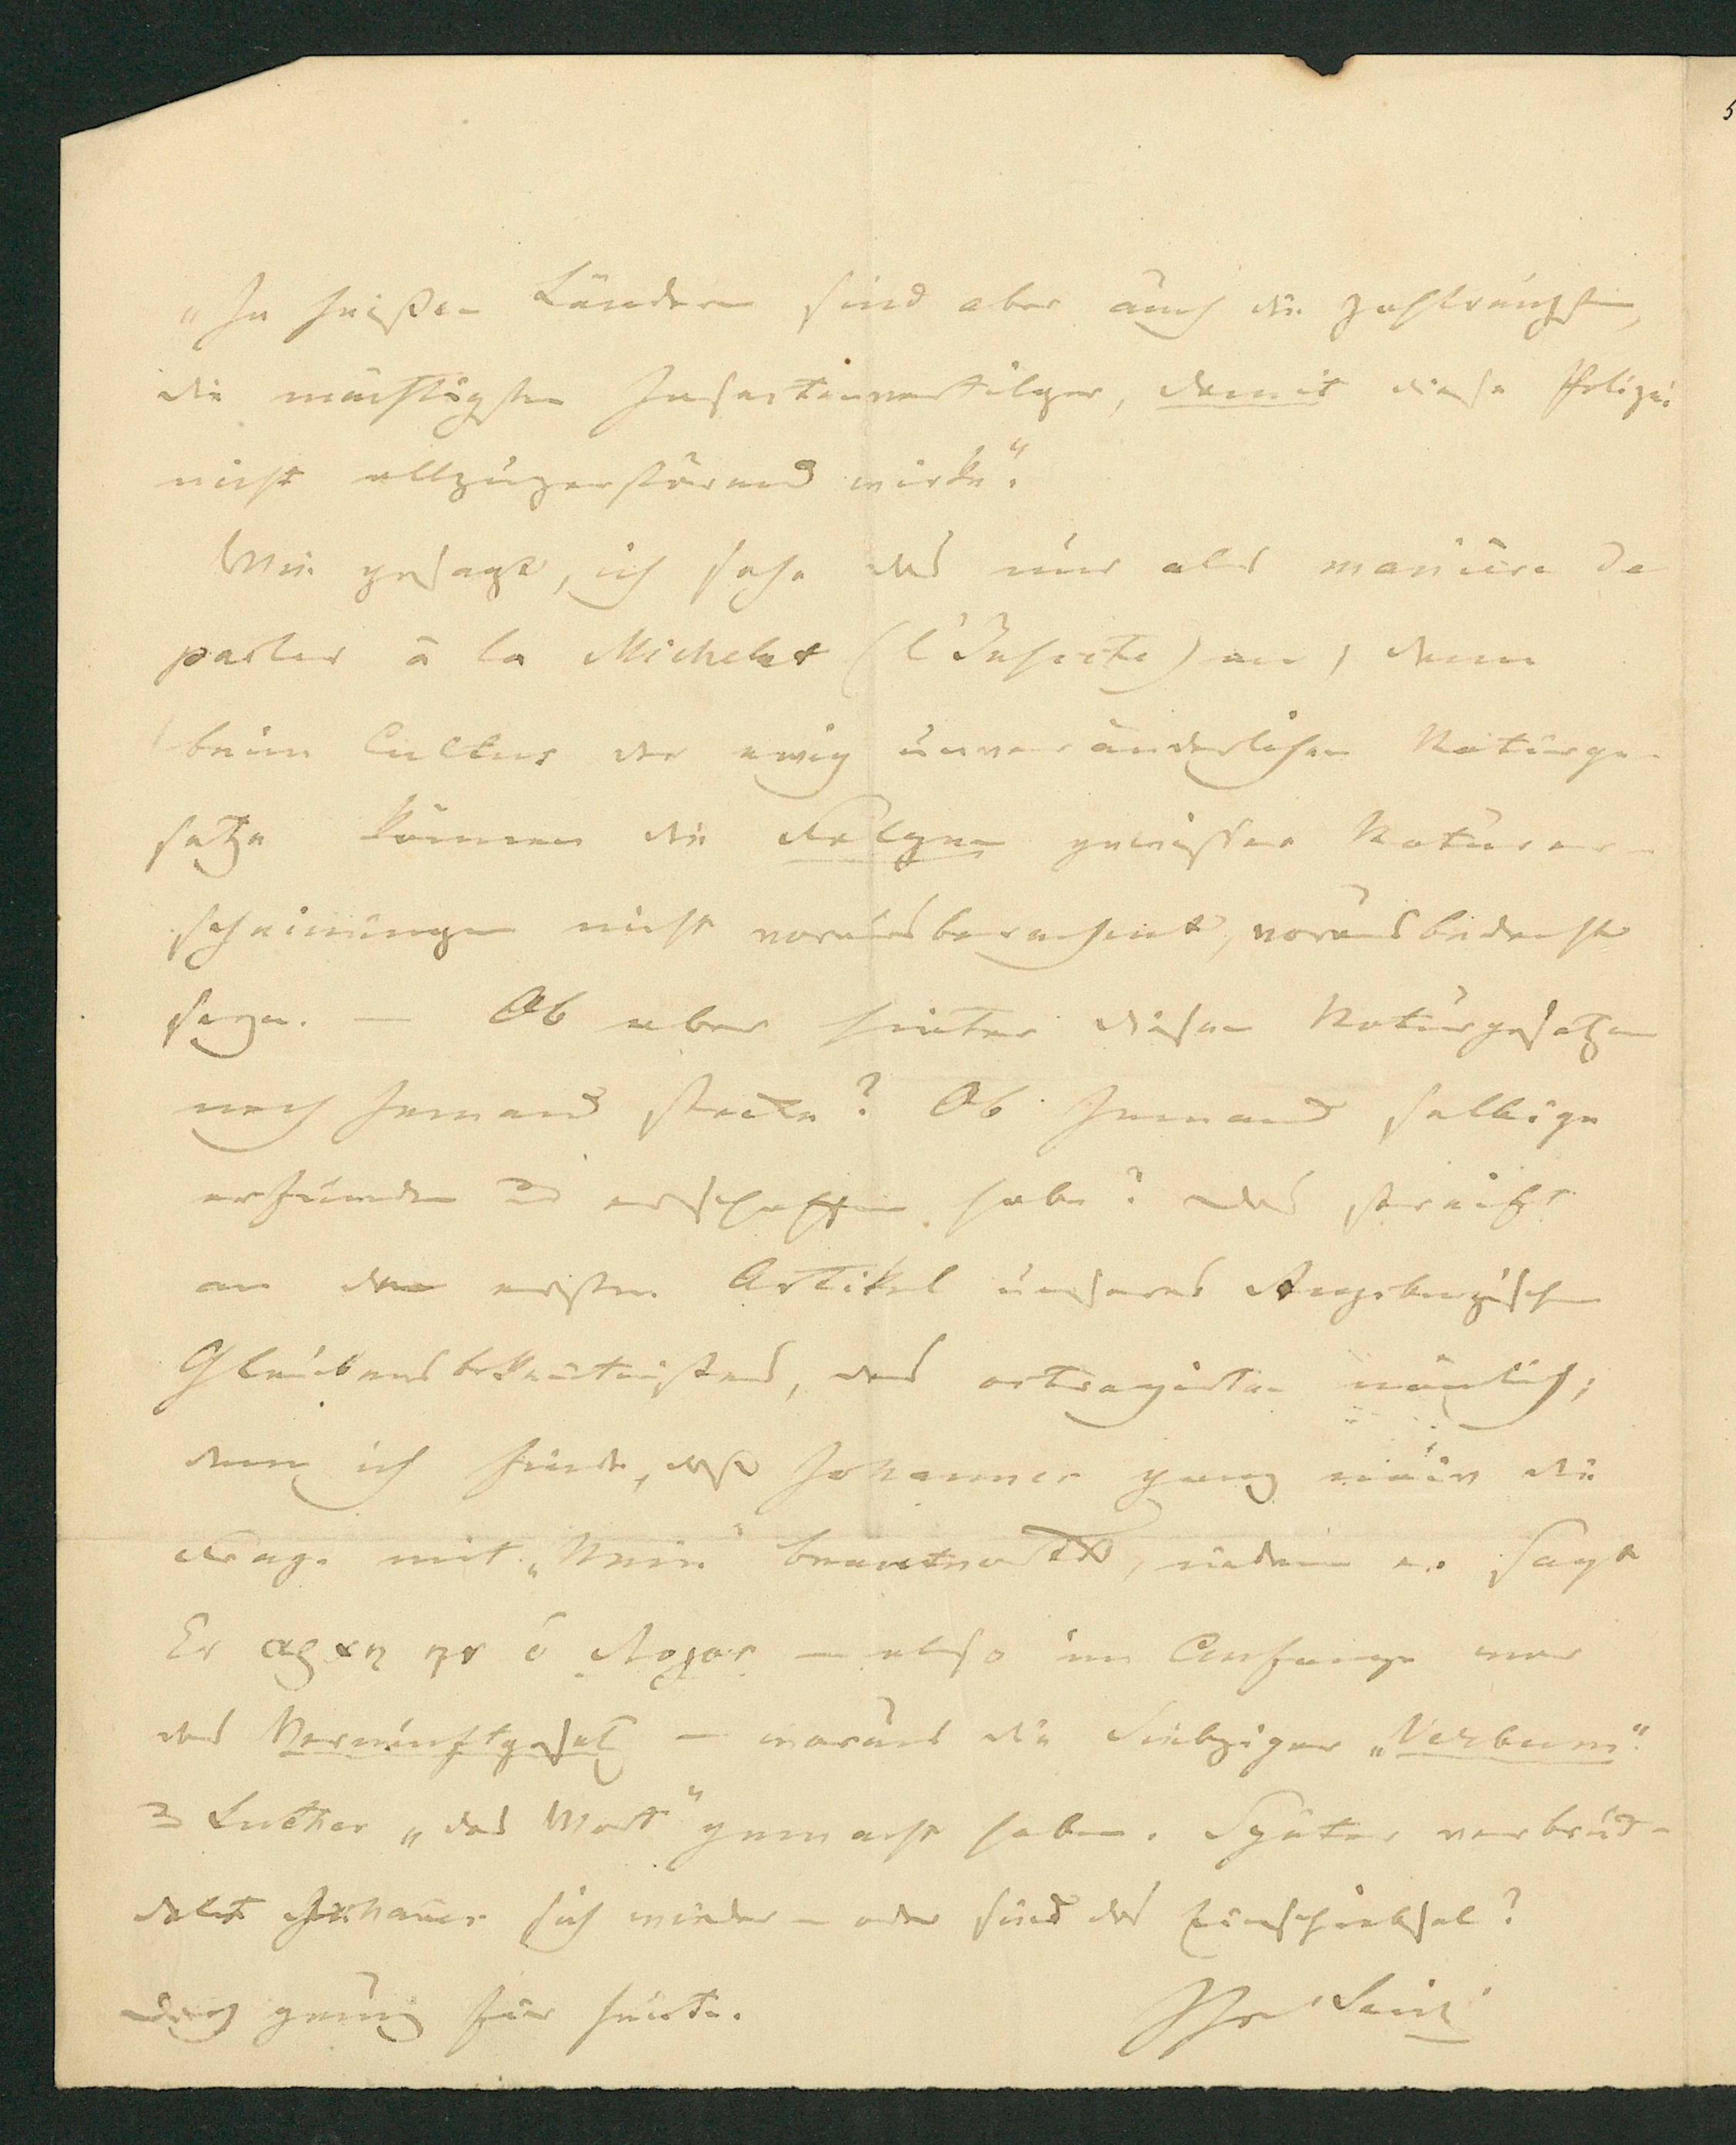 „In heißen Ländern sind aber auch die zahlreichsten,
die mächtigsten Insectenvertilger, damit diese Polizei
nicht allzuzerstörend wirke“.
Wie gesagt, ich sehe das nur als manière de
parler à la Michelet (l'Insecte) an, denn
beim Cultus der ewig unveränderlichen Naturge-
setze können die Folgen gewisser Naturer-
scheinungen nicht vorausberechnet, vorausbedacht
seyn. — Ob aber hinter diesen Naturgesetzen
noch Jemand stecke? Ob Jemand selbige
erfunden & erschaffen habe? das streift
an den ersten Artikel unseres Augsburgischen
Glaubensbekenntnisses, des octroyirten nämlich;
denn ich finde, daß Johannes ganz naiv die
Frage mit „Nein“ beantwortet, indem er sagt
Εν αρχη ην ὁ Λογος — also im Anfange war
das Vernunftgesetz — woraus die Siebziger „Verbum“
& Luther „das Wort“ gemacht haben. Später verbud-
delt Johannes sich wieder – oder sind das Einschiebsel?
Doch genug für heute.
Ihr